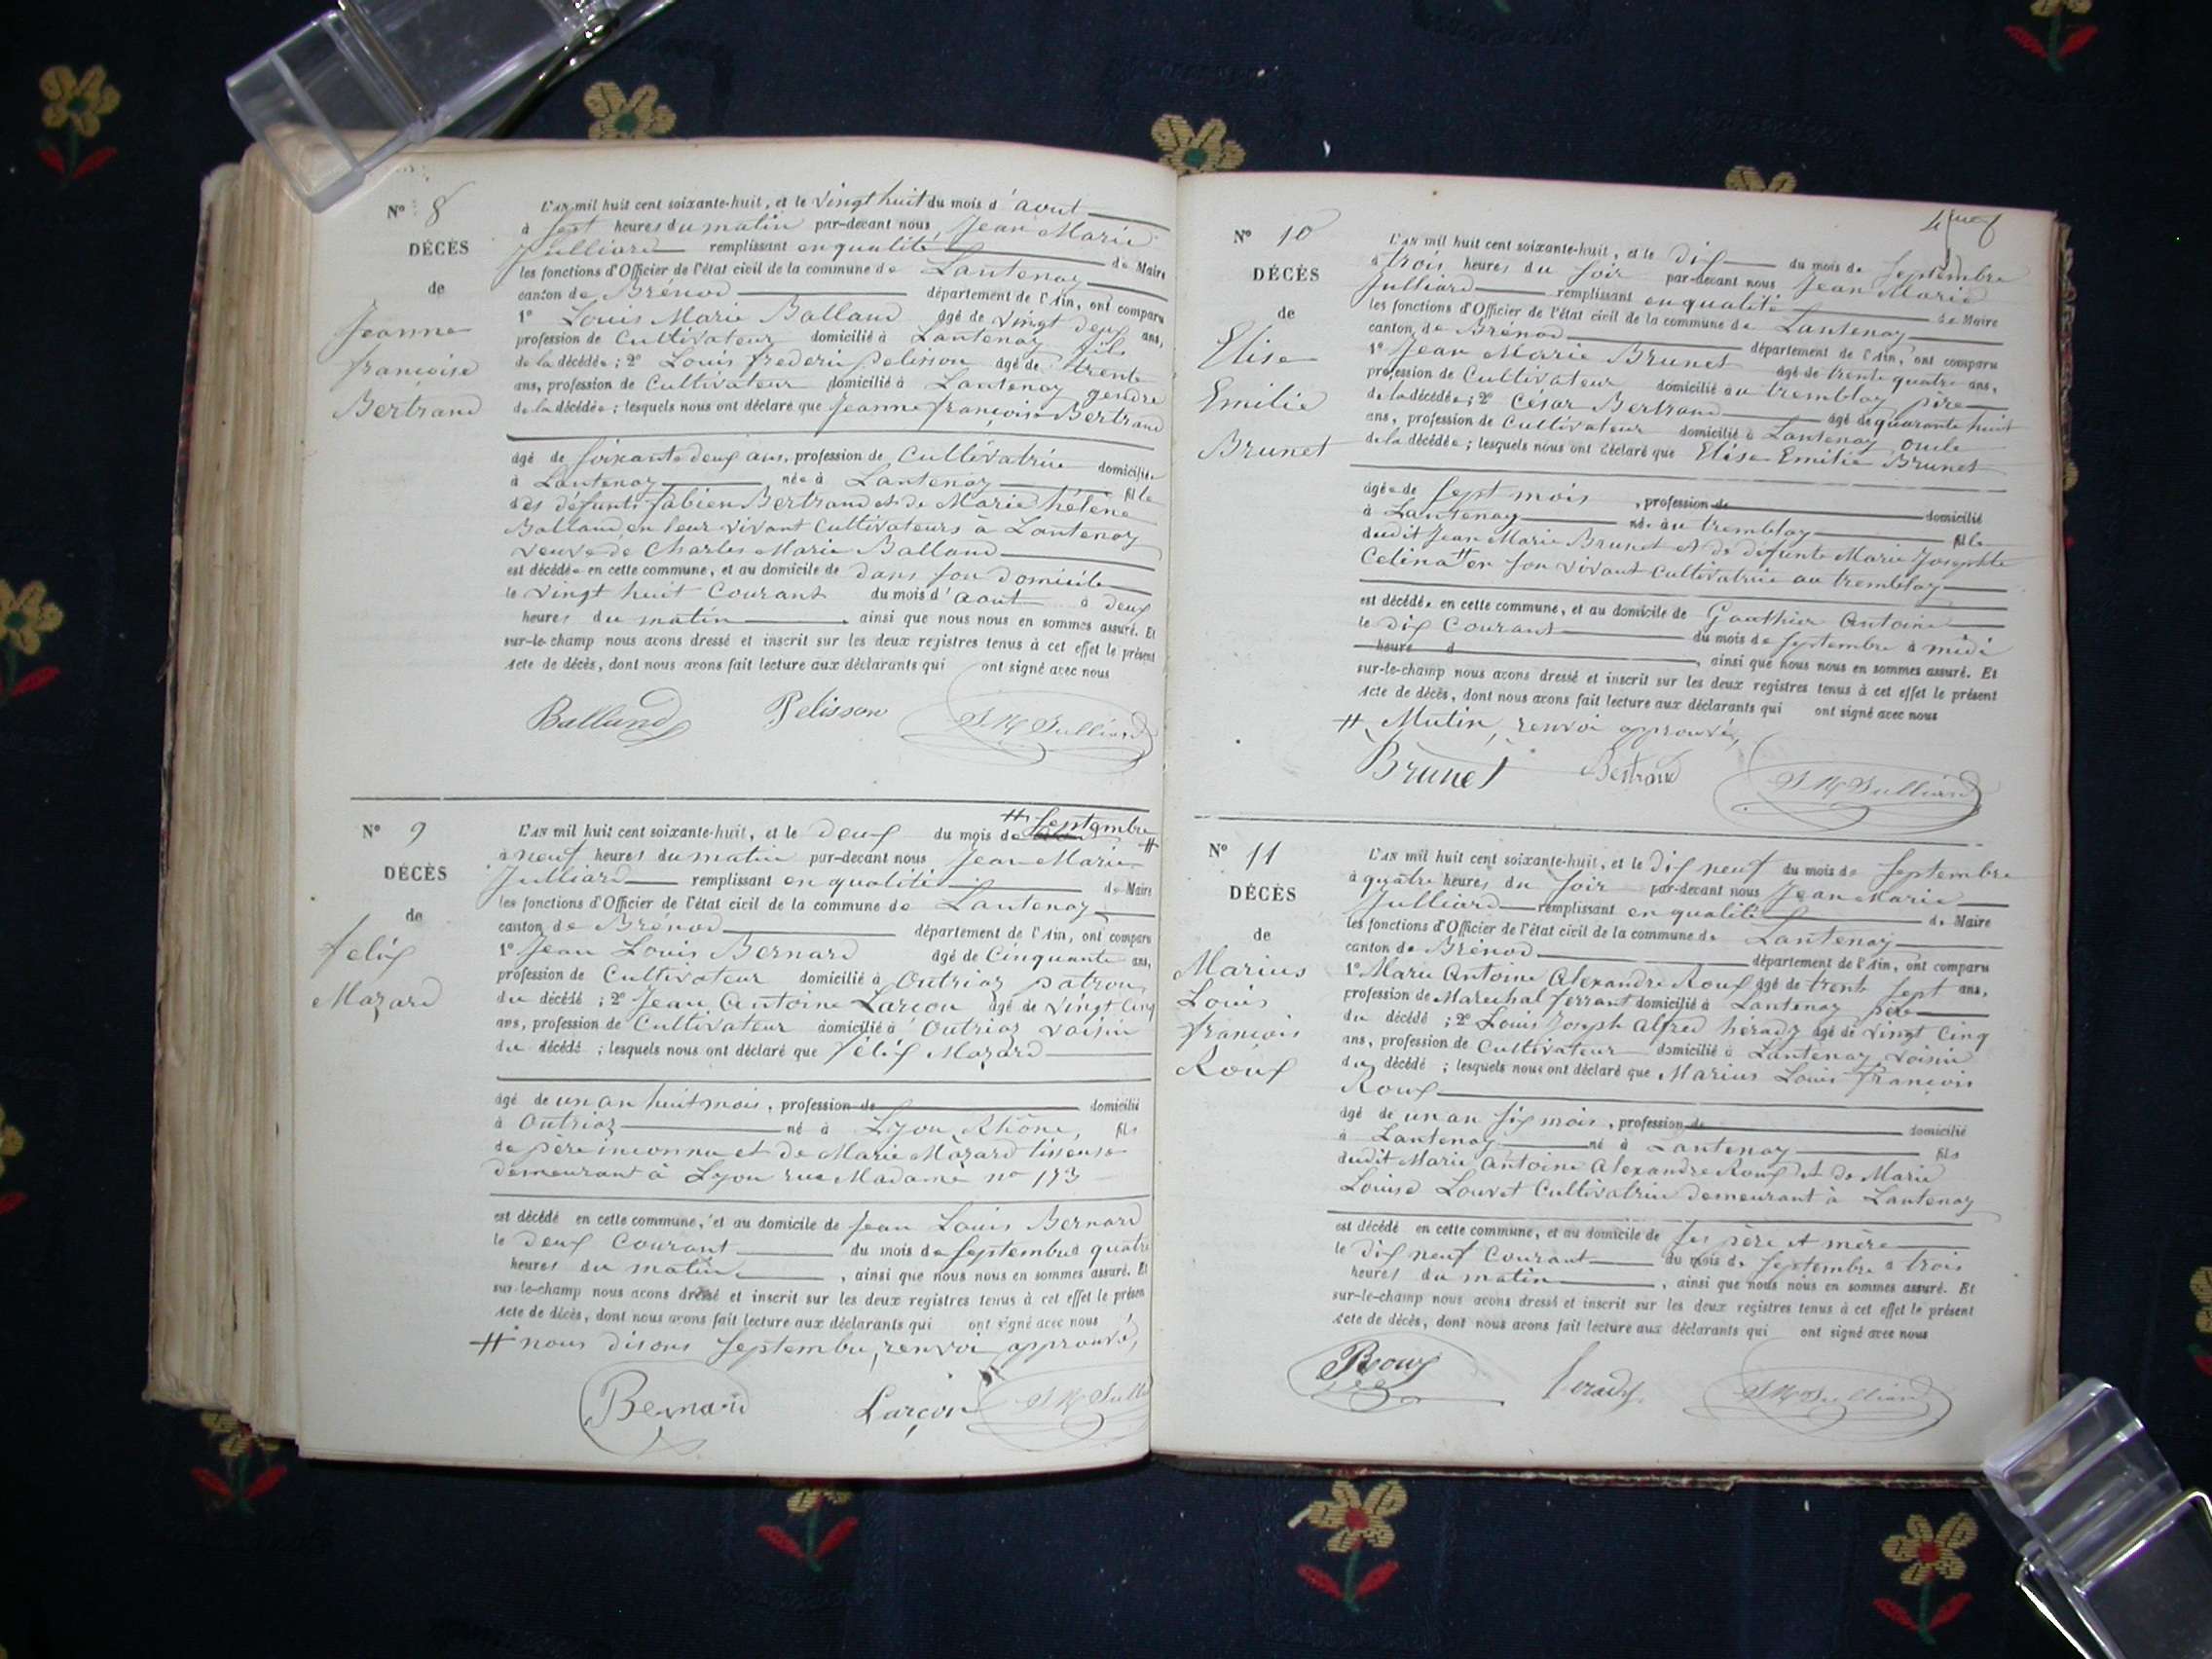 N° 8
DÉCÈS
de
Jeanne
françoise
Bertrand
L'AN mil huit cent soixante-huit, et le vingt huit du mois d'aout
à sept heures du matin par-devant nous, Jean Marie
Julliard remplissant en qualité de Maire
les fonctions d'Officier de l'état civil de la commune de Lantenay
canton de Brénod département de l'Ain, ont comparu
1° Louis Marie Balland âgé de vingt deux ans,
profession de Cultivateur domicilié à Lantenay fils
de la décédée; 2° Louis frederic pelisson âgé de trente
ans, profession de Cultivateur domicilié à Lantenay gendre
de la décédée; lesquels nous ont déclaré que Jeanne françoise Bertrand
âgé de soixante deux ans, profession de Cultivatrice domiciliée
à Lantenay née à Lantenay fille
des défunts fabien Bertrand et de Marie héléne
Balland, en leur vivant Cultivateurs à Lantenay
veuve de Charles Marie Balland
est décédée en cette commune, et au domicile de dans son domicile
le vingt huit Courant du mois d'aout à deux
heures du matin, ainsi que nous nous en sommes assuré. Et
sur-le-champ nous avons dressé et inscrit sur les deux registres tenus à cet effet le présent
acte de décès, dont nous avons fait lecture aux déclarants qui ont signé avec nous
Balland Pelisson J M Julliard
N° 9
DÉCÈS
de
felix
Mazard
L'AN mil huit cent soixante-huit, et le deux du mois de # septembre #
à neuf heures du matin par-devant nous Jean Marie
Julliard remplissant en qualité de Maire
les fonctions d'Officier de l'état civil de la commune de Lantenay
canton de Brénod département de l'Ain, ont comparu
1° Jean Louis Bernard âgé de Cinquante ans,
profession de Cultivateur domicilié à Outriaz patron
du décédé; 2° Jean Antoine Larçon âgé de vingt Cinq
ans, profession de Cultivateur domicilié à Outriaz voisin
du décédé; lesquels nous ont déclaré que félix Mazard
âgé de un an huit mois, profession de domicilié
à Outriaz né à Lyon Rhône, fils
de père inconnu et de Marie Mazard tisseuse
demeurant à Lyon rue Madame no 173
est décédé en cette commune, et au domicile de Jean Louis Bernard
le deux Courant du mois de septembre à quatre
heures du matin, ainsi que nous nous en sommes assuré. Et
sur-le-champ nous avons dressé et inscrit sur les deux registres tenus à cet effet le présen
acte de décès, dont nous avons fait lecture aux déclarants qui ont signé avec nous
# nous disons septembre, renvoi approuvé,
Bernard Larçon J M Julli
N° 10
DÉCÈS
de
Elise
Emilie
Brunet
L'AN mil huit cent soixante-huit, et le dix du mois de septembre
à trois heures du soir par-devant nous Jean Marie
Julliard remplissant en qualité de Maire
les fonctions d'Officier de l'état civil de la commune de Lantenay
canton de Brénod département de l'Ain, ont comparu
1° Jean Marie Brunet âgé de trente quatre ans,
profession de Cultivateur domicilié au tremblay père
de la décédée; 2° César Bertrand âgé de quarante huit
ans, profession de Cultivateur domicilié à Lantenay oncle
de la décédée; lesquels nous ont déclaré que Elise Emilie Brunet
âgée de sept mois, profession de domicilié
à Lantenay née au tremblay fille
dudit Jean Marie Brunet et de defunte Marie Josephte
Celina # en son vivant Cultivatrice au tremblay
est décédée en cette commune, et au domicile de Gauthier Antoine
le dix Courant du mois de septembre à midi
heure d, ainsi que nous nous en sommes assuré. Et
sur-le-champ nous avons dressé et inscrit sur les deux registres tenus à cet effet le présent
acte de décès, dont nous avons fait lecture aux déclarants qui ont signé avec nous
# Mutin, renvoi approuvé,
Brunet Bertrand J M Julliard
N° 11
DÉCÈS
de
Marius
Louis
françois
Roux
L'AN mil huit cent soixante-huit, et le dix neuf du mois de septembre
à quatre heures du soir par-devant nous Jean Marie
Julliard remplissant en qualité de Maire
les fonctions d'Officier de l'état civil de la commune de Lantenay
canton de Brénod département de l'Ain, ont comparu
1° Marie Antoine Alexandre Roux âgé de trente sept ans,
profession de Marechal ferrant domicilié à Lantenay père
du décédé; 2° Louis Joseph Alfred hérady âgé de vingt Cinq
ans, profession de Cultivateur domicilié à Lantenay voisin
du décédé; lesquels nous ont déclaré que Marius Louis françois
Roux
âgé de un an six mois, profession de domicilié
à Lantenay né à Lantenay fils
dudit Marie Antoine Alexandre Roux et de Marie
Louise Louvet Cultivatrice demeurant à Lantenay
est décédé en cette commune, et au domicile de ses père et mère
le dix neuf Courant du mois de septembre à trois
heures du matin, ainsi que nous nous en sommes assuré. Et
sur-le-champ nous avons dressé et inscrit sur les deux registres tenus à cet effet le présent
acte de décès, dont nous avons fait lecture aux déclarants qui ont signé avec nous
Roux herady J M Julliard